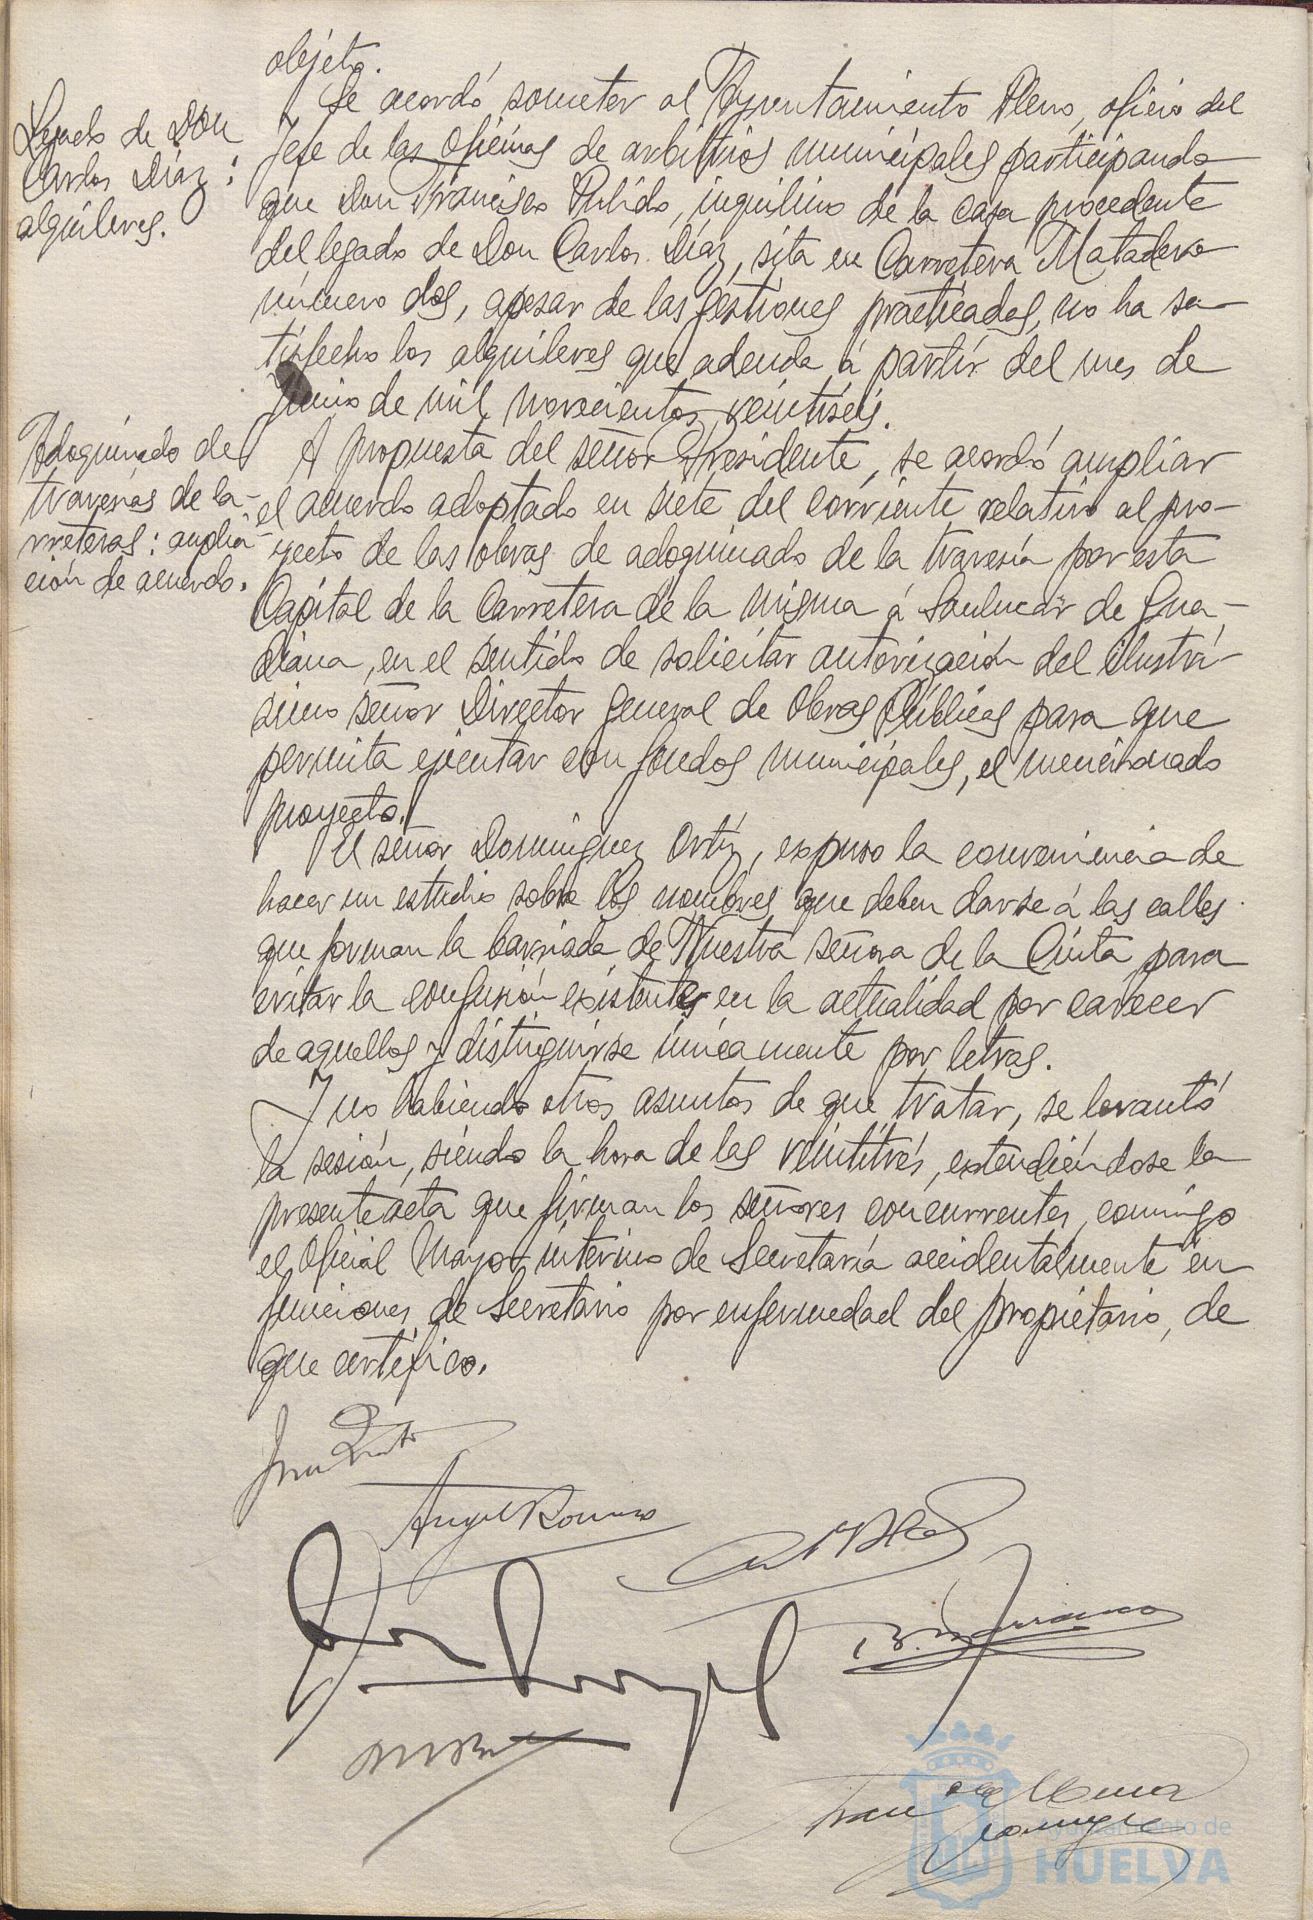 objeto.
Legado de Don
Carlos Díaz:
alquileres.
Se acordó someter al Ayuntamiento Pleno, oficio del
Jefe de las Oficinas de arbitrios municipales participando
que Don Francisco Pulido, inquilino de la casa procedente
del legado de Don Carlos Díaz, sita en Carretera Matadero
número dos, apesar de las gestiones practicadas, no ha sa-
tisfecho los alquileres que adeuda á partir del mes de
Junio de mil novecientos veintiséis.
Adoquinado de
travesías de ca-
rreteras: amplia-
ción de acuerdo.
A propuesta del señor Presidente, se acordó ampliar
el acuerdo adoptado en siete del corriente relativo al pro-
yecto de las obras de adoquinado de la travesía por esta
Capital de la Carretera de la misma á Sanlucar de Gua-
diana, en el sentido de solicitar autorización del ilustrí-
simo señor Director General de Obras Públicas para que
permita ejecutar con fondos municipales, el mencionado
proyecto.
El señor Domínguez Ortiz, expuso la conveniencia de
hacer un estudio sobre los nombres que deben darse á las calles
que forman la barriada de Nuestra señora de la Cinta para
evitar la confusión existente en la actualidad por carecer
de aquellos y distinguirse únicamente por letras.
Y no habiendo otros asuntos de que tratar, se levantó
la sesión, siendo la hora de las veintitrés, extendiéndose la
presente acta que firman los señores concurrentes, conmigo
el Oficial Mayor interino de Secretaría accidentalmente en
funciones de Secretario por enfermedad del propietario, de
que certifico.
Angel Romero
Ayuntamiento de
HUELVA